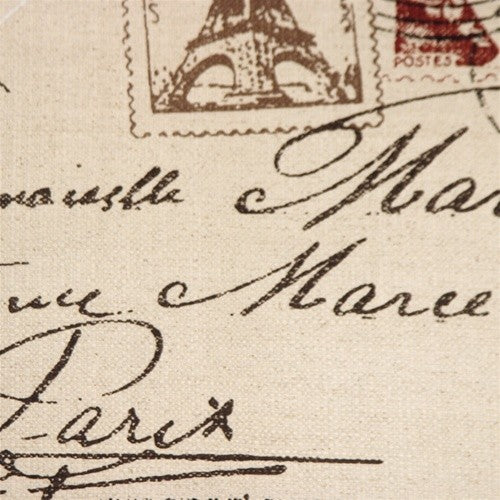 S
POSTES
moiselle Mar
nue Marce
Paris